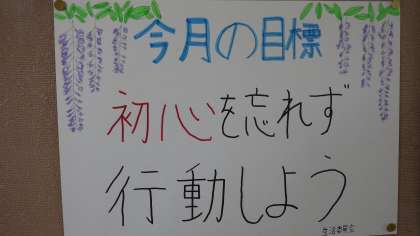 今月の目標
初心を忘れず
行動しよう
生活委員会